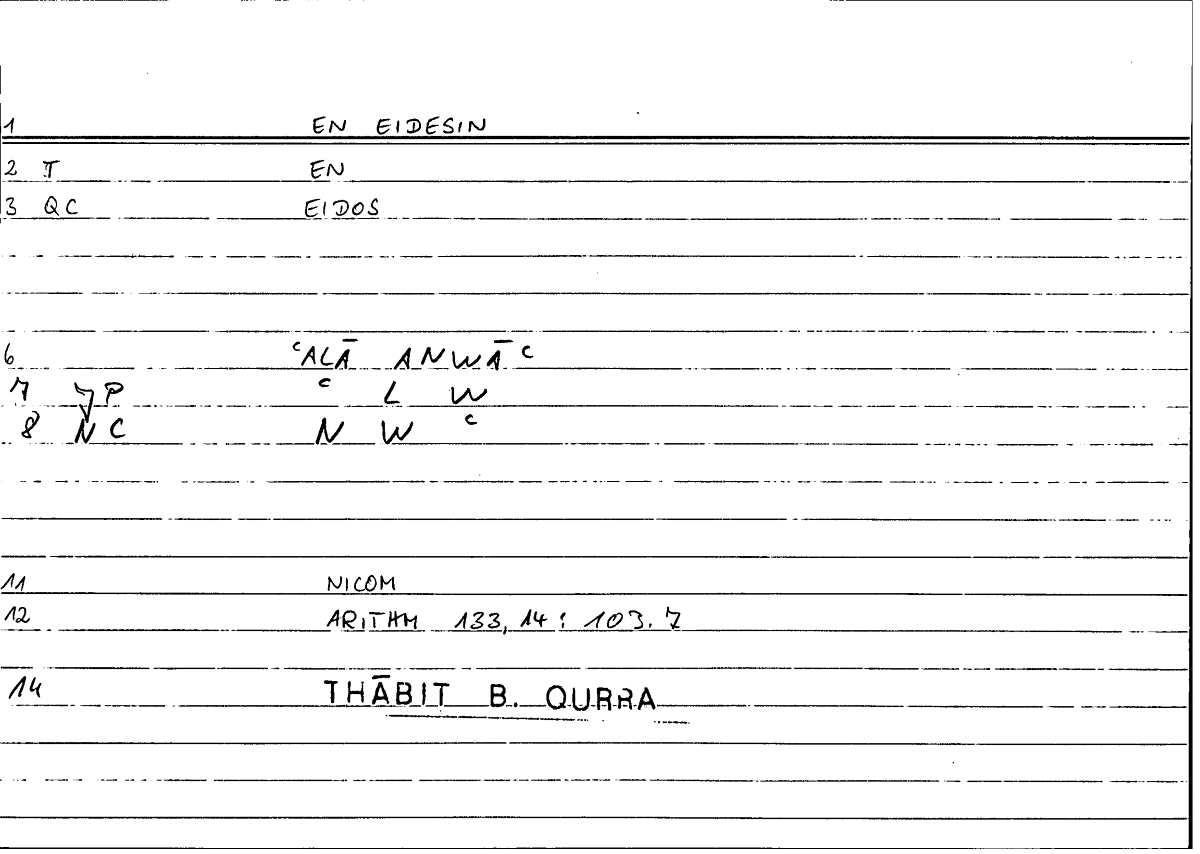 1 EN EIDESIN
2 T EN
3 QC EIDOS
6 ʿALĀ ANWĀʿ
7 JP ʿ L W
8 NC N W ʿ
11 NICOM
12 ARITHM 133, 14 : 103.7
14 THĀBIT B. QURRA